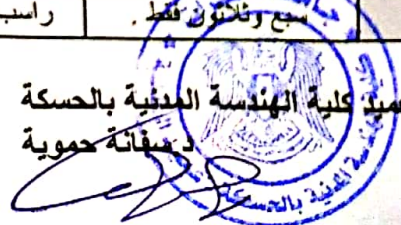 سبع وثلاثون فقط . راسب
عميد كلية الهندسة المدنية بالحسكة
د.سفانة حموية
المدنية بالحسكة